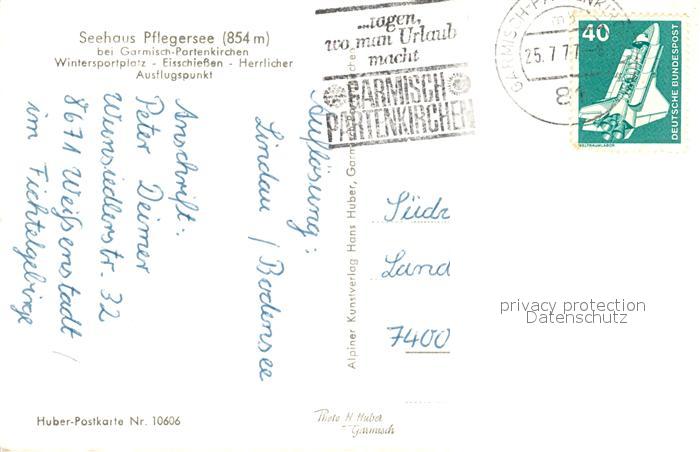 Seehaus Pflegersee (854 m)
bei Garmisch-Partenkirchen
Wintersportplatz - Eisschießen - Herrlicher
Ausflugspunkt
...tagen,
wo man Urlaub
macht
GARMISCH
PARTENKIRCHEN
GARMISCH-PARTENKIRCHEN
25.7.77
81
40
DEUTSCHE BUNDESPOST
WELTRAUMLABOR
Auflösung:
Lindau / Bodensee
Anschrift:
Peter Deimer
Wunsiedlerstr. 32
8671 Weißenstadt /
im Fichtelgebirge
Alpiner Kunstverlag Hans Huber, Garmisch-Partenkirchen
Südr
Land
7400
privacy protection
Datenschutz
Huber-Postkarte Nr. 10606
Photo H. Huber
Garmisch